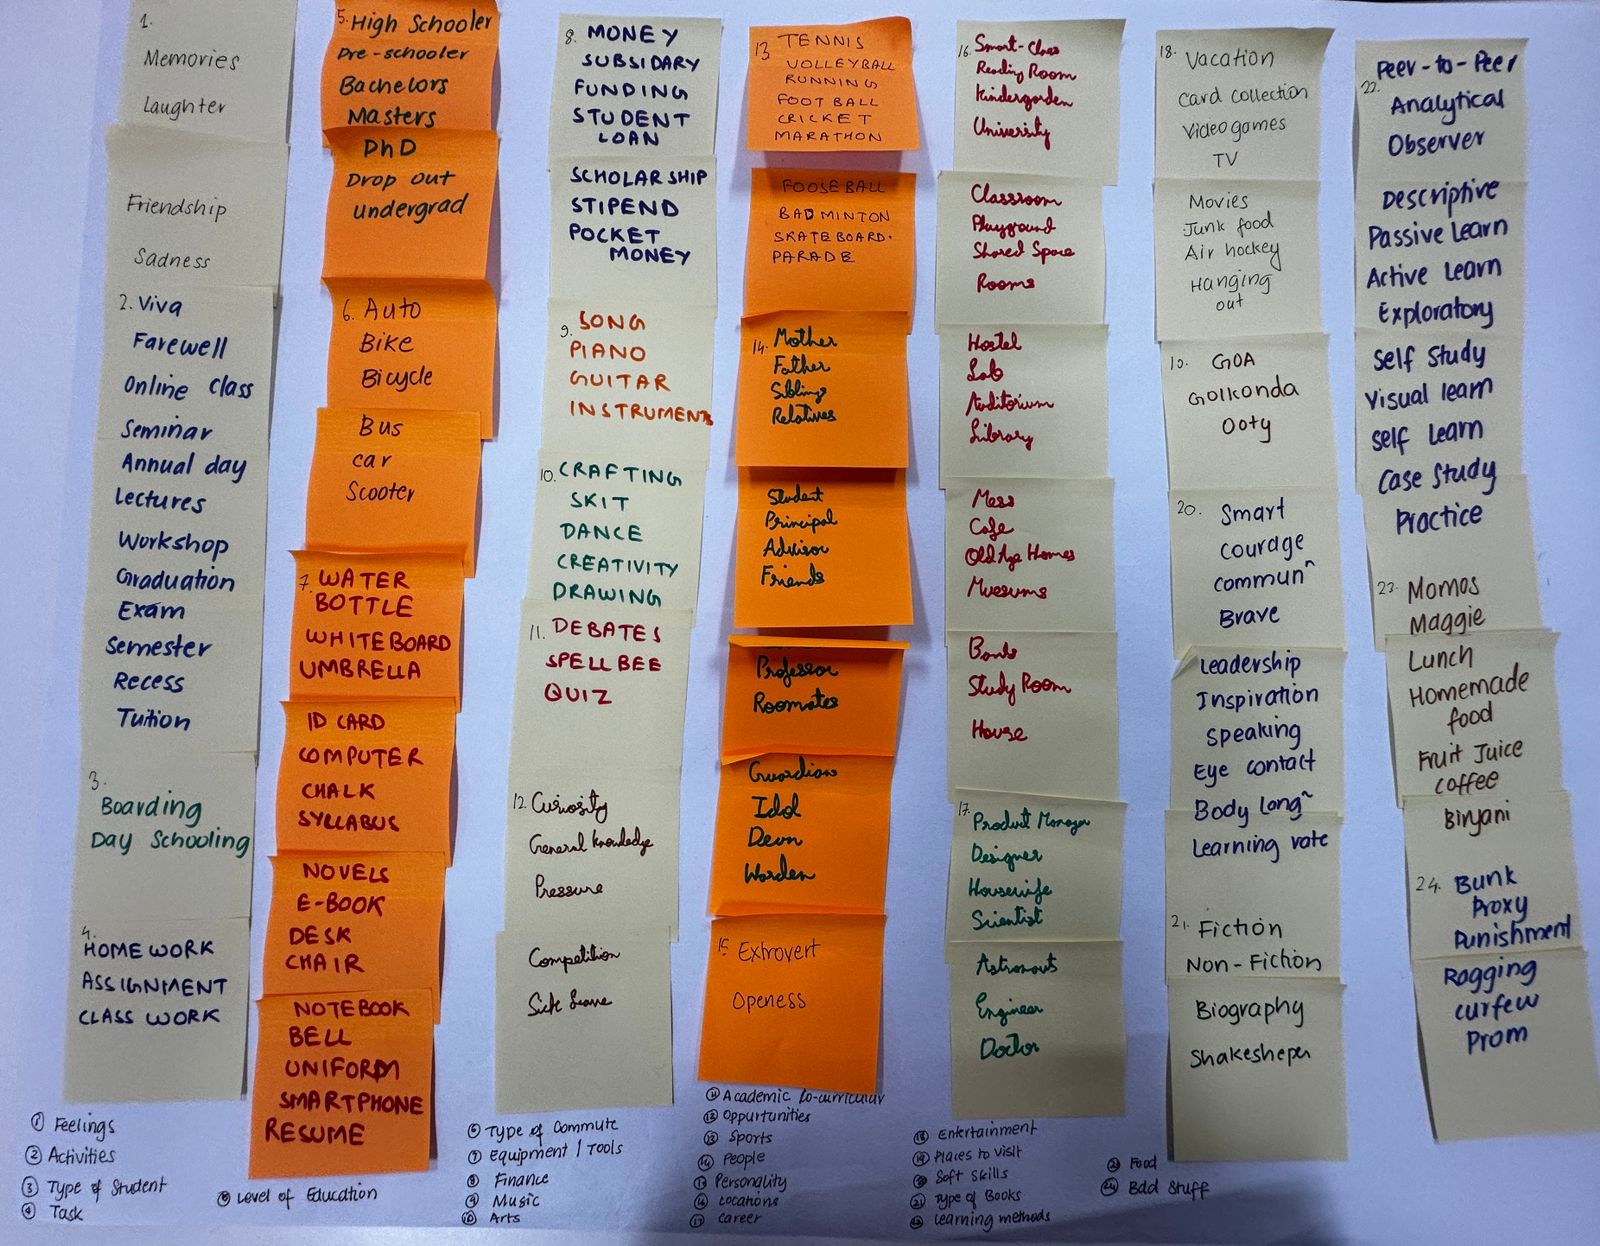 1.
Memories
Laughter
Friendship
Sadness
2. Viva
Farewell
Online Class
Seminar
Annual day
Lectures
Workshop
Graduation
Exam
Semester
Recess
Tuition
3.
Boarding
Day Schooling
4.
HOMEWORK
ASSIGNMENT
CLASS WORK
5. High Schooler
Pre-schooler
Bachelors
Masters
PhD
Drop out
undergrad
6. Auto
Bike
Bicycle
Bus
car
Scooter
7. WATER
BOTTLE
WHITEBOARD
UMBRELLA
ID CARD
COMPUTER
CHALK
SYLLABUS
NOVELS
E-BOOK
DESK
CHAIR
NOTEBOOK
BELL
UNIFORM
SMARTPHONE
RESUME
8. MONEY
SUBSIDARY
FUNDING
STUDENT
LOAN
SCHOLARSHIP
STIPEND
POCKET
MONEY
9. SONG
PIANO
GUITAR
INSTRUMENTS
10. CRAFTING
SKIT
DANCE
CREATIVITY
DRAWING
11. DEBATES
SPELLBEE
QUIZ
12. Curiosity
General knowledge
Pressure
Competition
Sick leave
13. TENNIS
VOLLEYBALL
RUNNING
FOOTBALL
CRICKET
MARATHON
FOOSEBALL
BADMINTON
SKATEBOARD.
PARADE
14. Mother
Father
Siblings
Relatives
Student
Principal
Advisor
Friends
Professor
Roomates
Guardian
Idol
Dean
Warden
15. Extrovert
Openess
16. Smart-Class
Reading Room
Kindergarden
University
Classroom
Playground
Shared Space
Rooms
Hostel
Lab
Auditorium
Library
Mess
Cafe
Old Age Homes
Museums
Study Room
House
17. Product Manager
Designer
Housewife
Scientist
Astronauts
Engineer
Doctor
18. Vacation
Card collection
Video games
TV
Movies
Junk food
Air hockey
Hanging
out
19. GOA
Golkonda
Ooty
20. Smart
Courage
commun^
Brave
Leadership
Inspiration
Speaking
Eye contact
Body Lang~
Learning rate
21. Fiction
Non-Fiction
Biography
Shakesheper
22. Peer-to-Peer
Analytical
Observer
Descriptive
Passive Learn
Active Learn
Exploratory
Self Study
Visual learn
Self Learn
Case Study
Practice
23. Momos
Maggie
Lunch
Homemade
food
Fruit Juice
Coffee
Biryani
24. Bunk
Proxy
Punishment
Ragging
curfew
Prom
① Feelings
② Activities
③ Type of Student
④ Task
⑤ Level of Education
⑥ Type of Commute
⑦ Equipment / Tools
⑧ Finance
⑨ Music
⑩ Arts
⑪ Academic Co-curricular
⑫ Oppurtunities
⑬ Sports
⑭ People
⑮ Personality
⑯ Locations
⑰ Career
⑱ Entertainment
⑲ Places to visit
⑳ Soft Skills
㉑ Type of Books
㉒ Learning methods
㉓ Food
㉔ Bad Stuff